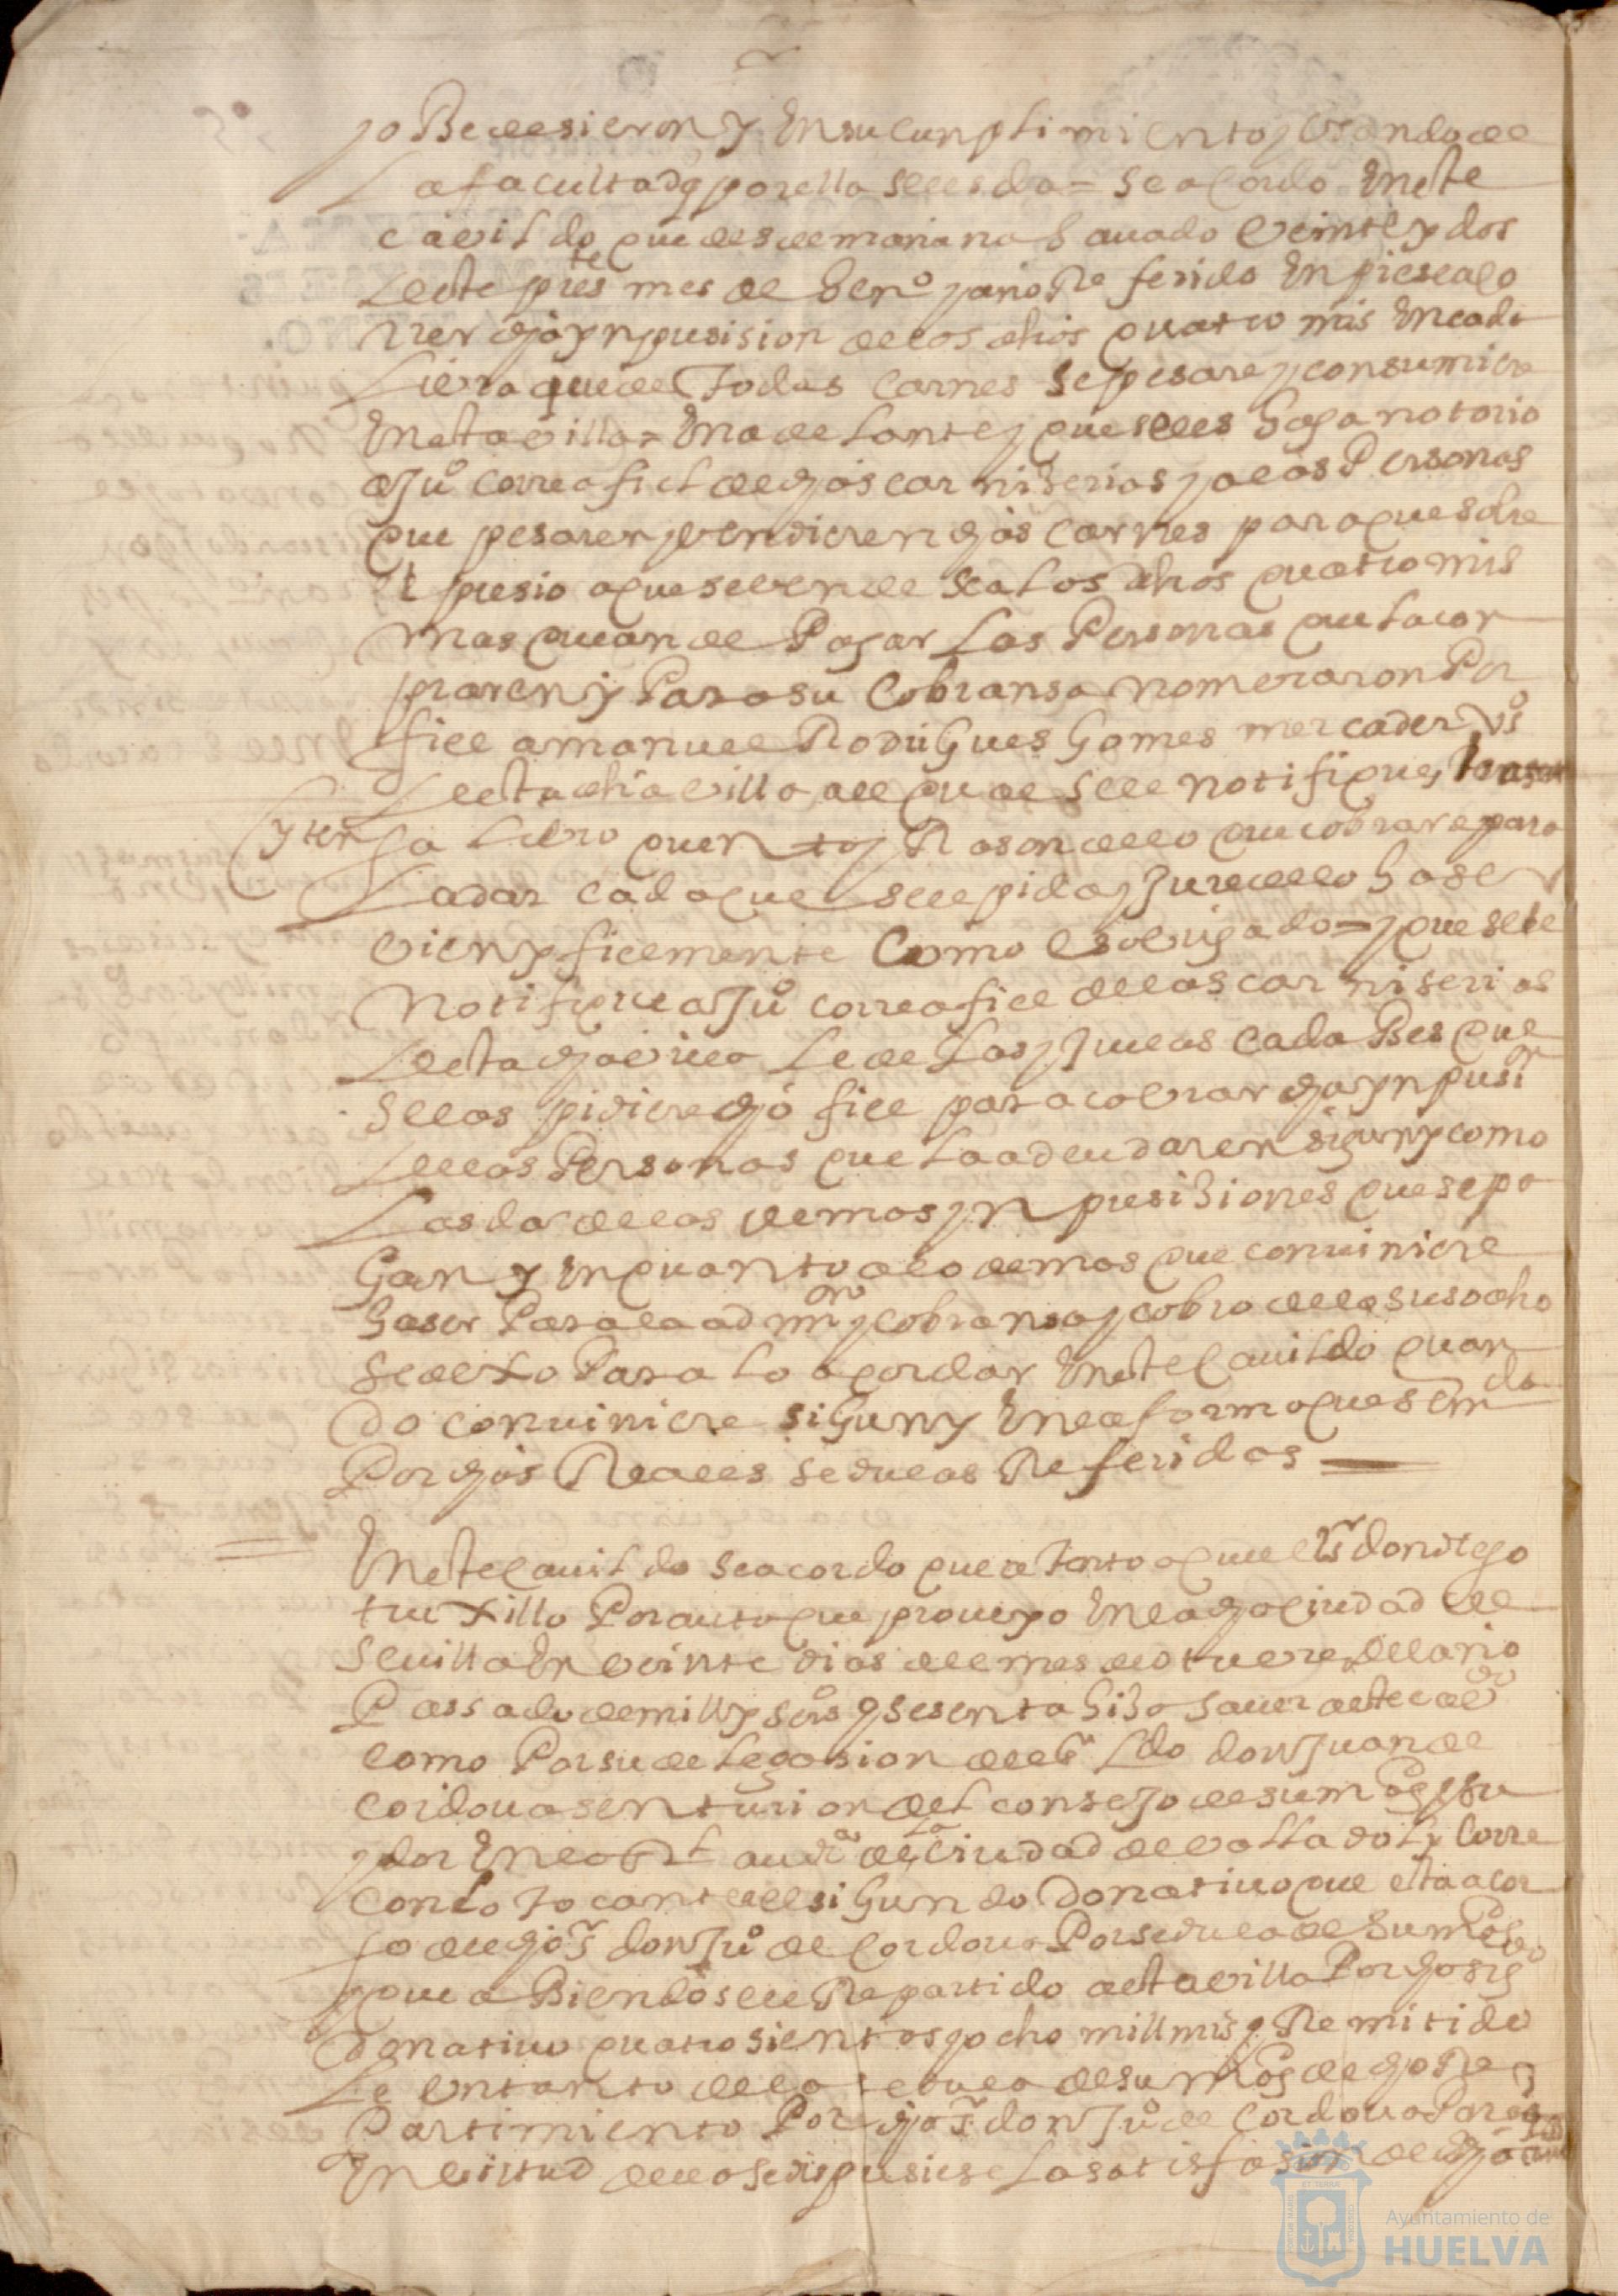 yo Bedesieron y En su cunplimiento y Usando de
la facultad q por ella se les da = se acordo En este
cavildo que desde mañana Savado Veinte y dos
deste pres.te mes de Hen.o y año Referido Enpiese a co
rrer dja ynpusision de los dhos quatro mrs En cada
Livra que de todas carnes se pesare y consumiere
En esta villa = En adelante y que se les haga notorio
a Ju.o correa fiel de djas carniserias y a las Personas
que pesaren y vendieren djas carnes para que sobre
El presio a que se vende sea los dhos quatro mrs
mas que an de Pagar Las Personas que la con
praren y Para su cobransa nomvraron Por
fiel a manuel Rodrigues Gomes mercader V.o
desta dha villa al qual se le notifique,
y ten ga Libro quenta y Rason de lo que cobrare para
la dar cada que se le pida y Jure de lo haser
vien y fielmente Como es obligado = y que se le
Notifique a Ju.o correa fiel de las carniserias
desta dja villa le de Las Julas cada Bes que
se las pidiere djo fiel para cobrar dja ynpusi.on
de las Personas que la adeudaren sigun y como
Las da de las demas ynpusisiones que se pa
Gan y En quanto a lo demas que conviniere
haser Para la adm.on y cobransa y cobro de lo suso dho
se dexo Para lo acordar En este cavildo quan
do conviniere sigun y En la forma que se m.da
Por djas Reales sedulas Referidas —
= En este cavildo se acordo que a tento a que el s.r don diego
truxillo Por auto que proveyo En la dja ciudad de
Sevilla En veinte dias del mes de otuvre del año
Passado de mill y seis.o y sesenta hiso saver a este cav.do
como Por su delegasion del s.r L.do don Juan de
cordova senturion del consejo de su mag.d y su
ydor En la R.l aud.a de la ciudad de valladolid Corre
con lo tocante al sigundo donativo que esta a car
go del djo s.r don Ju.o de Cordova Por sedula de Su mag.d
y que aBiendosele Repartido a esta villa Por djo sig.do
donativo quatrosientos y ocho mill mrs y Remitido
le un tanto de la sedula de su mag.d de djo Re
Partimiento Por djo s.r don Ju.o de Cordova Para q
En virtud de ella se dispusiese La satisfasion de djo
Ayuntamiento de
HUELVA